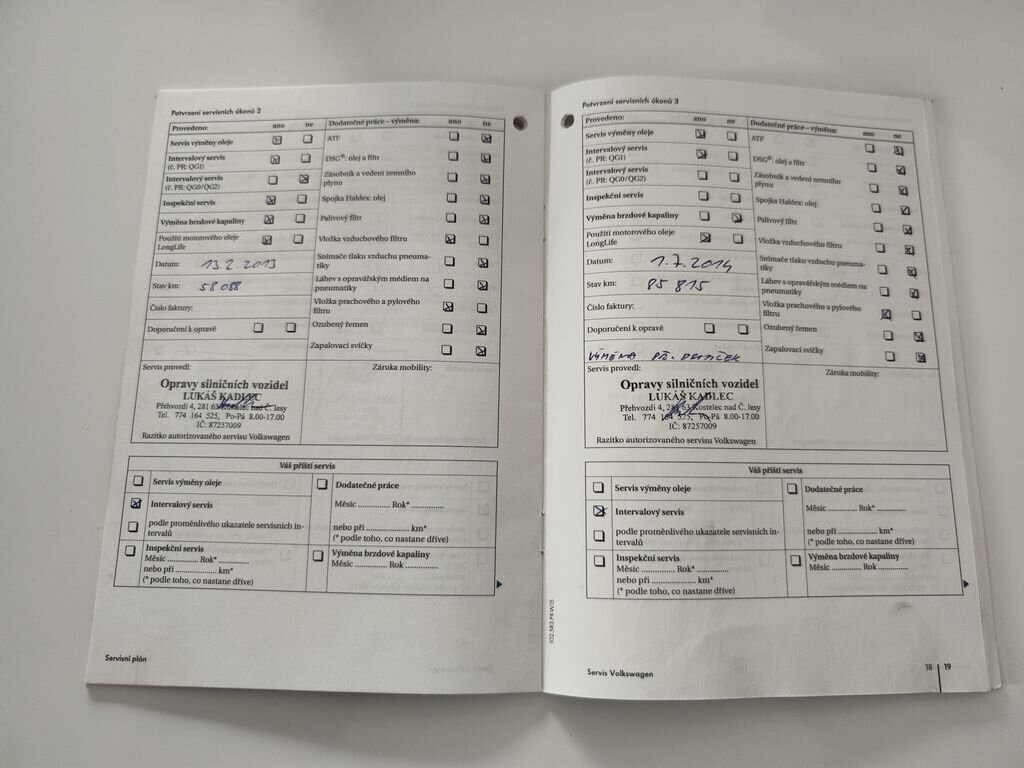 Potvrzení servisních úkonů 2
Provedeno: ano ne
Servis výměny oleje
Intervalový servis
(č. PR: QG1)
Intervalový servis
(č. PR: QG0/QG2)
Inspekční servis
Výměna brzdové kapaliny
Použití motorového oleje
LongLife
Datum: 13.2.2013
Stav km: 58 088
Číslo faktury:
Doporučení k opravě
Dodatečné práce – výměna: ano ne
ATF
DSG®: olej a filtr
Zásobník a vedení zemního
plynu
Spojka Haldex: olej
Palivový filtr
Vložka vzduchového filtru
Snímače tlaku vzduchu pneuma-
tiky
Láhev s opravářským médiem na
pneumatiky
Vložka prachového a pylového
filtru
Ozubený řemen
Zapalovací svíčky
Servis provedl:
Opravy silničních vozidel
LUKÁŠ KADLEC
Přehvozdí 4, 281 63 Kostelec nad Č. lesy
Tel. 774 164 525, Po-Pá 8.00-17.00
IČ: 87257009
Razítko autorizovaného servisu Volkswagen
Záruka mobility:
Váš příští servis
Servis výměny oleje
Intervalový servis
podle proměnlivého ukazatele servisních in-
tervalů
Inspekční servis
Měsíc .............. Rok* .............
nebo při .................. km*
(* podle toho, co nastane dříve)
Dodatečné práce
Měsíc .............. Rok* .............
nebo při .................. km*
(* podle toho, co nastane dříve)
Výměna brzdové kapaliny
Měsíc .............. Rok .............
Servisní plán
Potvrzení servisních úkonů 3
Provedeno: ano ne
Servis výměny oleje
Intervalový servis
(č. PR: QG1)
Intervalový servis
(č. PR: QG0/QG2)
Inspekční servis
Výměna brzdové kapaliny
Použití motorového oleje
LongLife
Datum: 1.7.2014
Stav km: 85 815
Číslo faktury:
Doporučení k opravě
VÝMĚNA PŘ. DESTIČEK
Dodatečné práce – výměna: ano ne
ATF
DSG®: olej a filtr
Zásobník a vedení zemního
plynu
Spojka Haldex: olej
Palivový filtr
Vložka vzduchového filtru
Snímače tlaku vzduchu pneuma-
tiky
Láhev s opravářským médiem na
pneumatiky
Vložka prachového a pylového
filtru
Ozubený řemen
Zapalovací svíčky
Servis provedl:
Opravy silničních vozidel
LUKÁŠ KADLEC
Přehvozdí 4, 281 63 Kostelec nad Č. lesy
Tel. 774 164 525, Po-Pá 8.00-17.00
IČ: 87257009
Razítko autorizovaného servisu Volkswagen
Záruka mobility:
Váš příští servis
Servis výměny oleje
Intervalový servis
podle proměnlivého ukazatele servisních in-
tervalů
Inspekční servis
Měsíc .............. Rok* .............
nebo při .................. km*
(* podle toho, co nastane dříve)
Dodatečné práce
Měsíc .............. Rok* .............
nebo při .................. km*
(* podle toho, co nastane dříve)
Výměna brzdové kapaliny
Měsíc .............. Rok .............
102.5R3.PKW.15
Servis Volkswagen
18 | 19